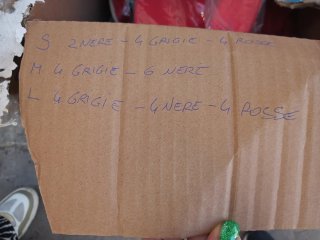 S 2 NERE - 4 GRIGIE - 4 ROSSE
M 4 GRIGIE - 6 NERE
L 4 GRIGIE - 4 NERE - 4 ROSSE